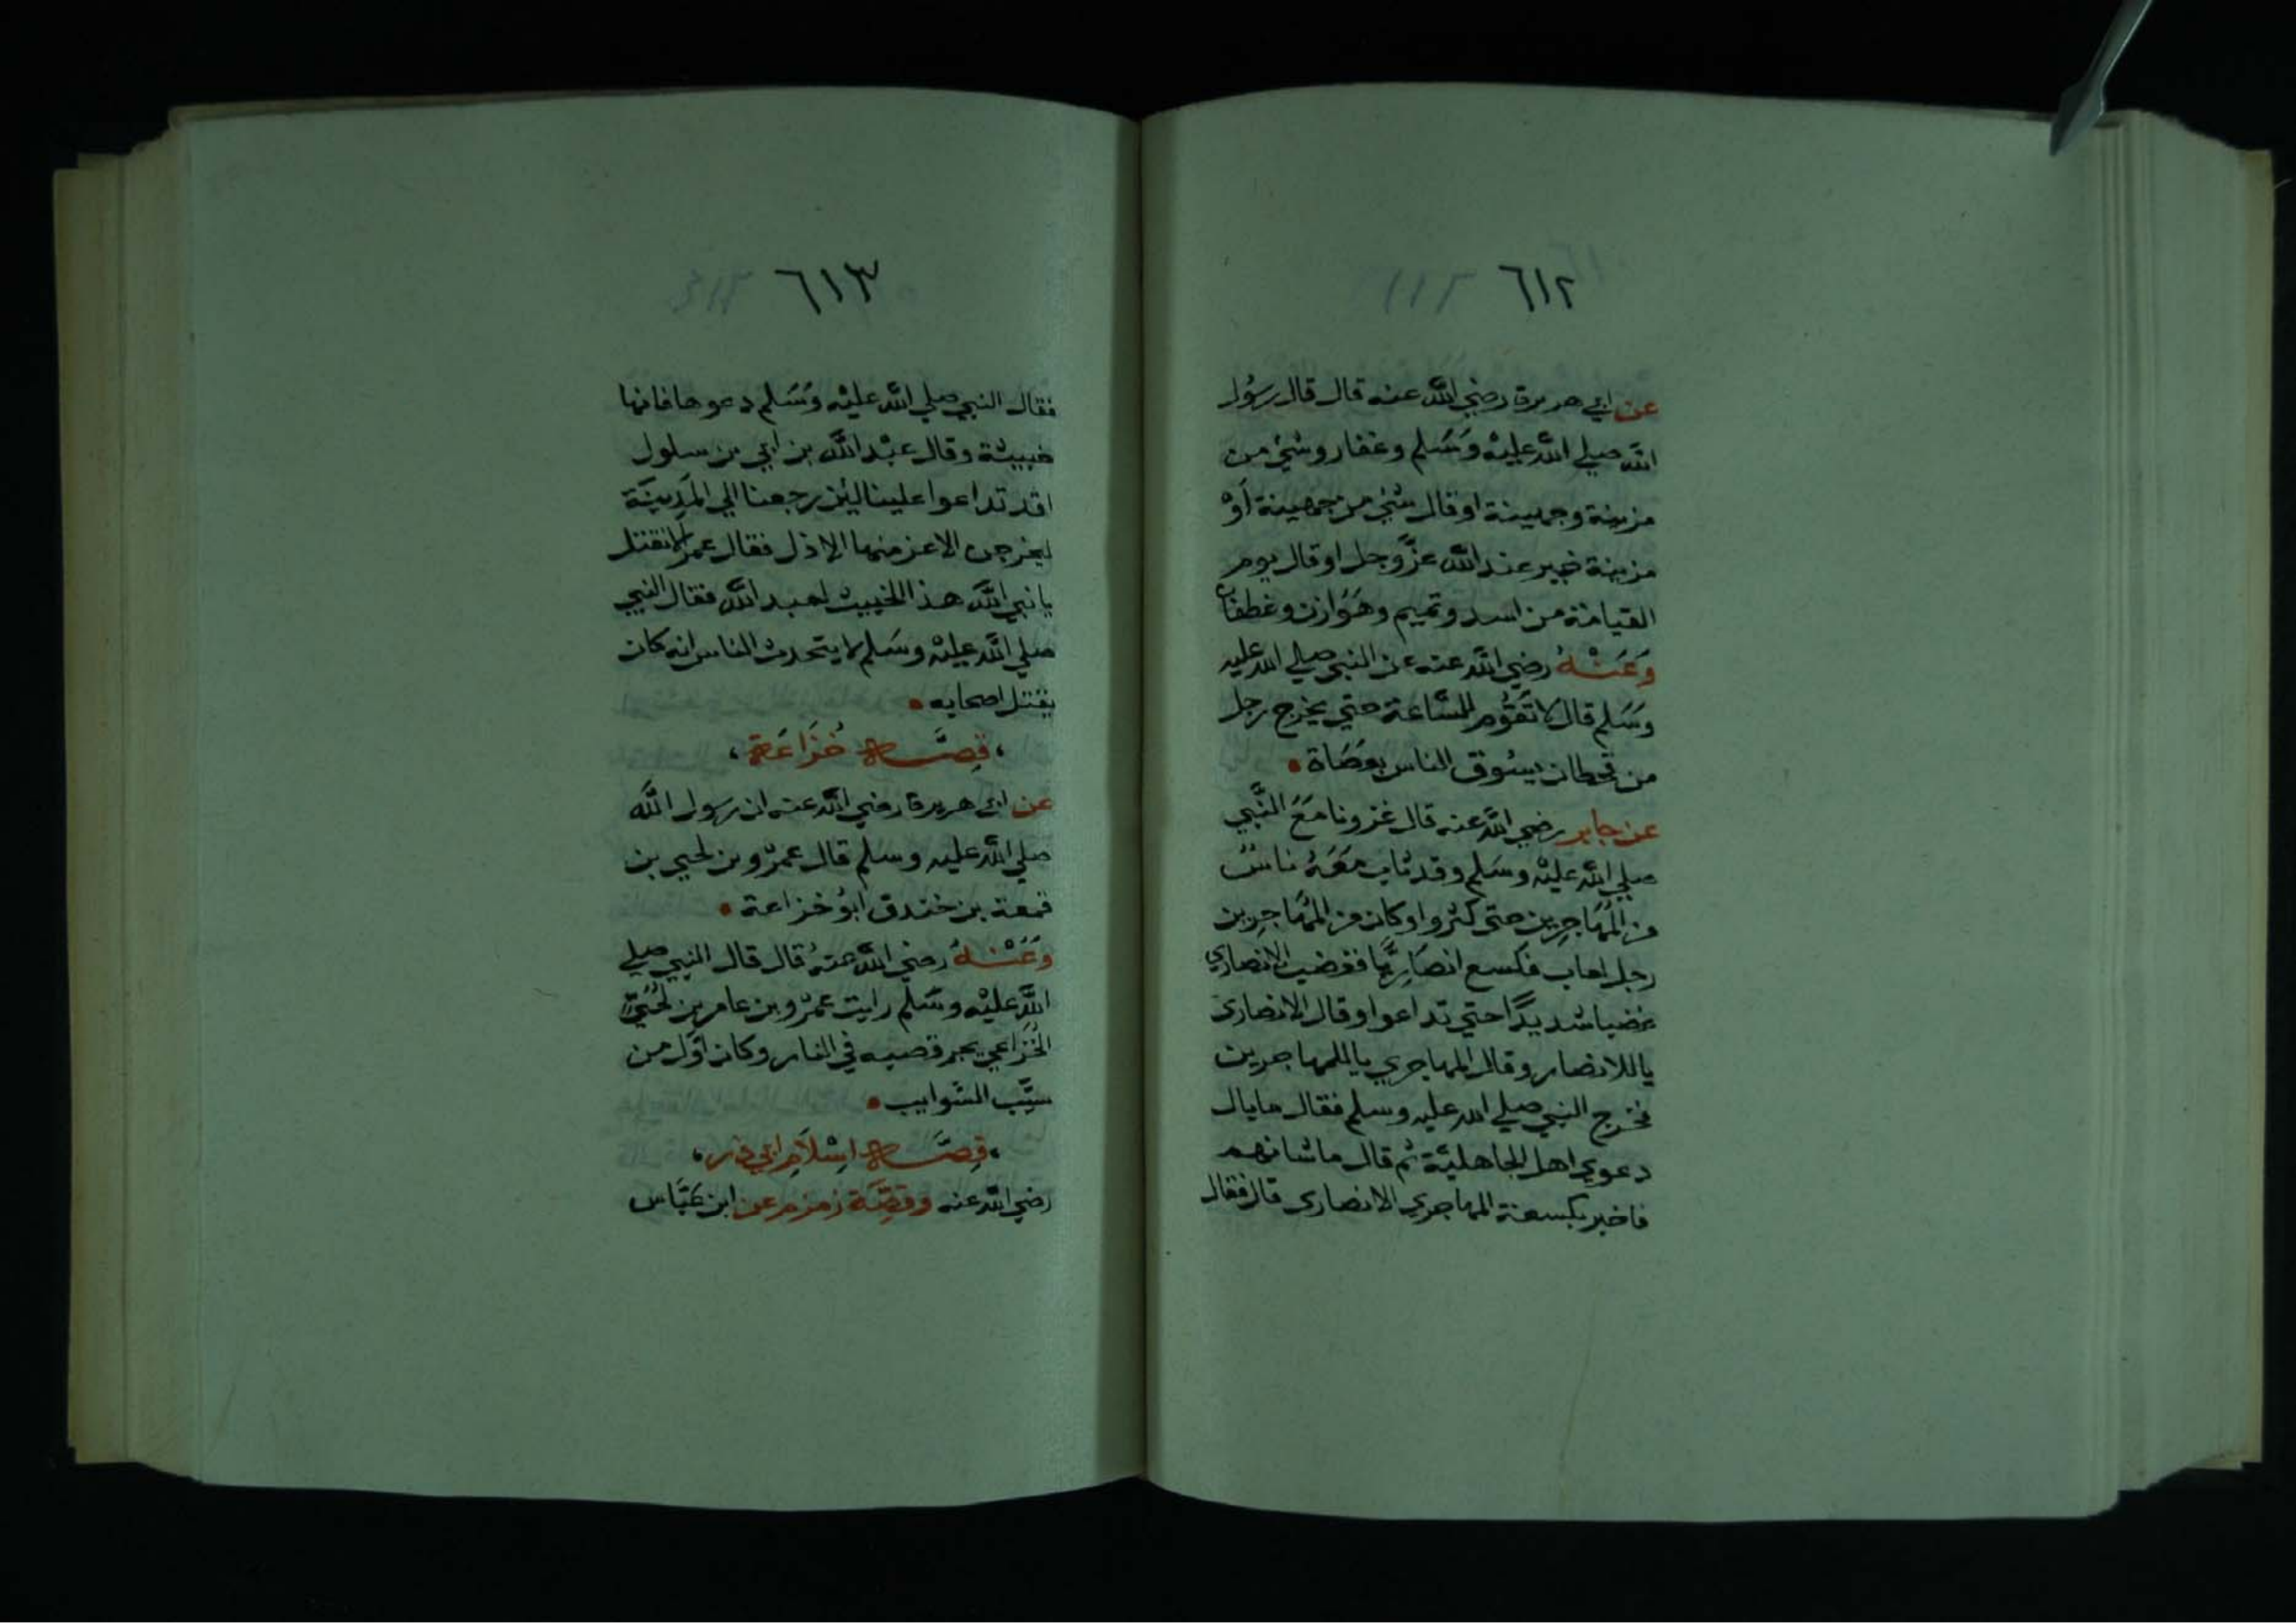 ٦١٢
عن ابي هريرة رضي الله عنه قال قال رسُول
الله صلي الله عليْه وَسَلم وغفار وشي من
مزينة وجهينة اوقال شي من جهينة أوْ
مزينة خير عند الله عزّوجل اوقال يوم
القيامة من اسد وتميم وهَوَازن وغطفان
وَعَنْهُ رضي الله عنه عن النبي صلي الله عليه
وسَلم قال لا تقُوم السّاعة حتي يخرج رجل
من قحطان يسُوق الناس بعصَاة
عن جابر رضي الله عنه قال غزونا مَعَ النَّبي
صلي الله عليْه وسَلم وقد ثاب مَعَهُ ناسٌ
من المهَاجِرين حتى كثروا وكان من المهَاجِرين
رجل لعاب فكسع انصَارِيًّا فغضب الانصاري
غضبا شديدًا حتي تداعوا وقال الانصارى
ياللانصار وقال المهاجري ياللمهاجرين
فخرج النبي صلي الله عليه وسلم فقال مابال
دعوي اهل الجاهليَّة ثم قال ما شانهم
فاخبر بكسعة المهاجري الانصارى قال فقال
٦١٣
فقال النبي صلي الله عليْه وَسَلم دعوها فانها
خبيثة وقال عبْد الله بن ابي بن سلول
اقد تداعوا علينا لئن رجعنا الي المدِينَة
ليخرجن الاعز منها الاذل فقال عمر الا نقتل
يا نبي الله هذا الخبيث لعبد الله فقال النبي
صلي الله عليْه وسَلم لا يتحدث الناس انه كان
يقتل اصحابه
قِصَّة خُزَاعَة
عن ابي هريرة رضي الله عنه ان رسول الله
صلي الله عليه وسلم قال عمرْو بن لحي بن
قمعة بن خندق ابوُ خزاعة
وَعَنْهُ رضي الله عنهُ قال قال النبي صلي
الله عليْه وسَلم رايت عمرْو بن عامر بن لحُيّ
الخُزَاعي يجر قصبه في النار وكان اوّل من
سيَّب السَّوايب
قِصَّة اِسْلَام ابي ذر
رضي الله عنه وقِصَّة زمزم عن ابن عَبَّاس